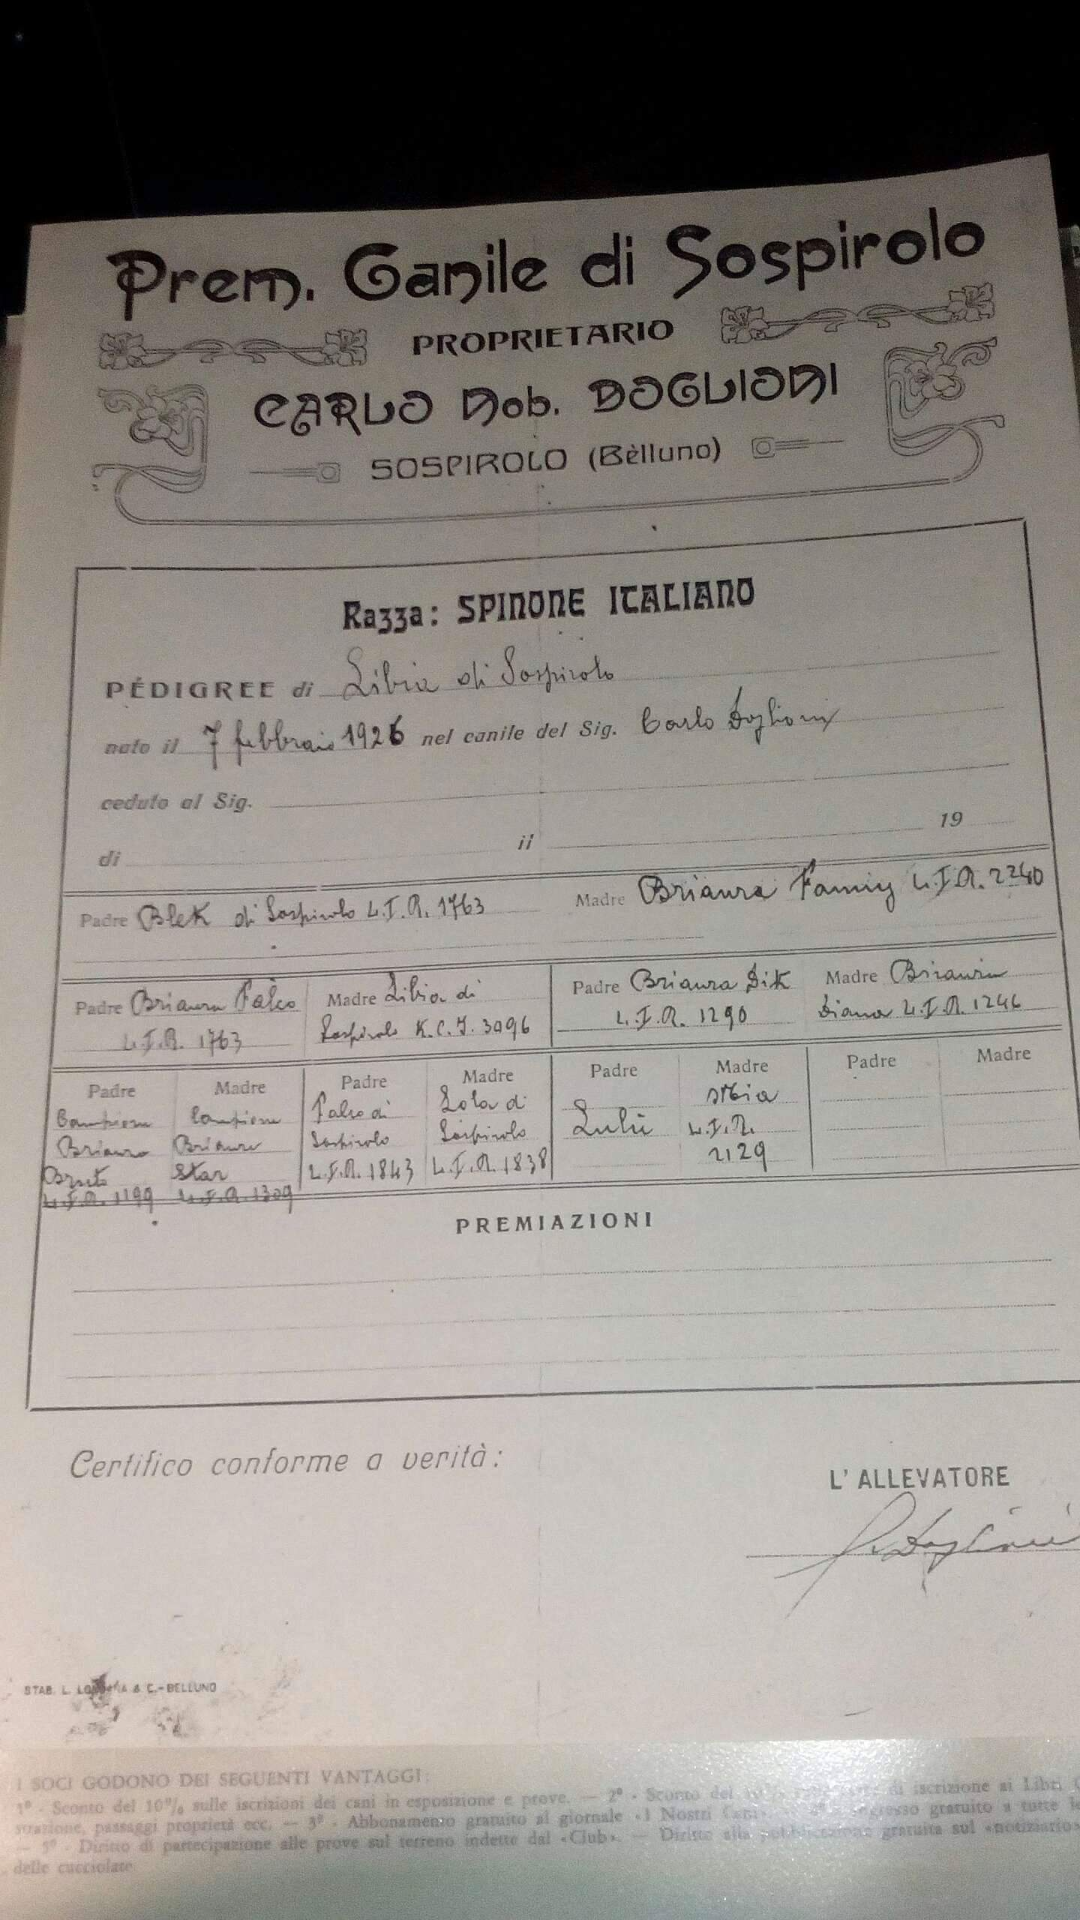 Prem. Canile di Sospirolo
PROPRIETARIO
CARLO Nob. DOGLIONI
SOSPIROLO (Bèlluno)
Razza: SPINONE ITALIANO
PÉDIGREE di Libia di Sospirolo
nato il 7 febbraio 1926 nel canile del Sig. Carlo Doglioni
ceduto al Sig.
di il 19
Padre Blek di Sospirolo L.I.R. 1763 Madre Brianza Fanny L.I.R. 2240
Padre Brianza Falco Madre Libia di Padre Brianza Dik Madre Brianza
L.I.R. 1763 Sospirolo K.C.I. 3096 L.I.R. 1290 Diana L.I.R. 1246
Padre Madre Padre Madre Padre Madre Padre Madre
Campione Campione Falco di Lola di Lulù L.I.R.
Brianza Brianza Sospirolo Sospirolo 2129
Bruto Star L.I.R. 1843 L.I.R. 1838
L.I.R. 1199 L.I.R. 1309
PREMIAZIONI
Certifico conforme a verità:
L'ALLEVATORE
C. Doglioni
STAB. L. & C.-BELLUNO
I SOCI GODONO DEI SEGUENTI VANTAGGI:
1° - Sconto del 10% sulle iscrizioni dei cani in esposizione e prove. — 2° - Sconto del di iscrizione ai Libri
strazione, passaggi proprietà ecc. — 3° - Abbonamento gratuito al giornale «I Nostri Cani». gratuito a tutte le
— 5° - Diritto di partecipazione alle prove sul terreno indette dal «Club». — Diritto alla pubblicazione gratuita sul «notiziario»
delle cucciolate